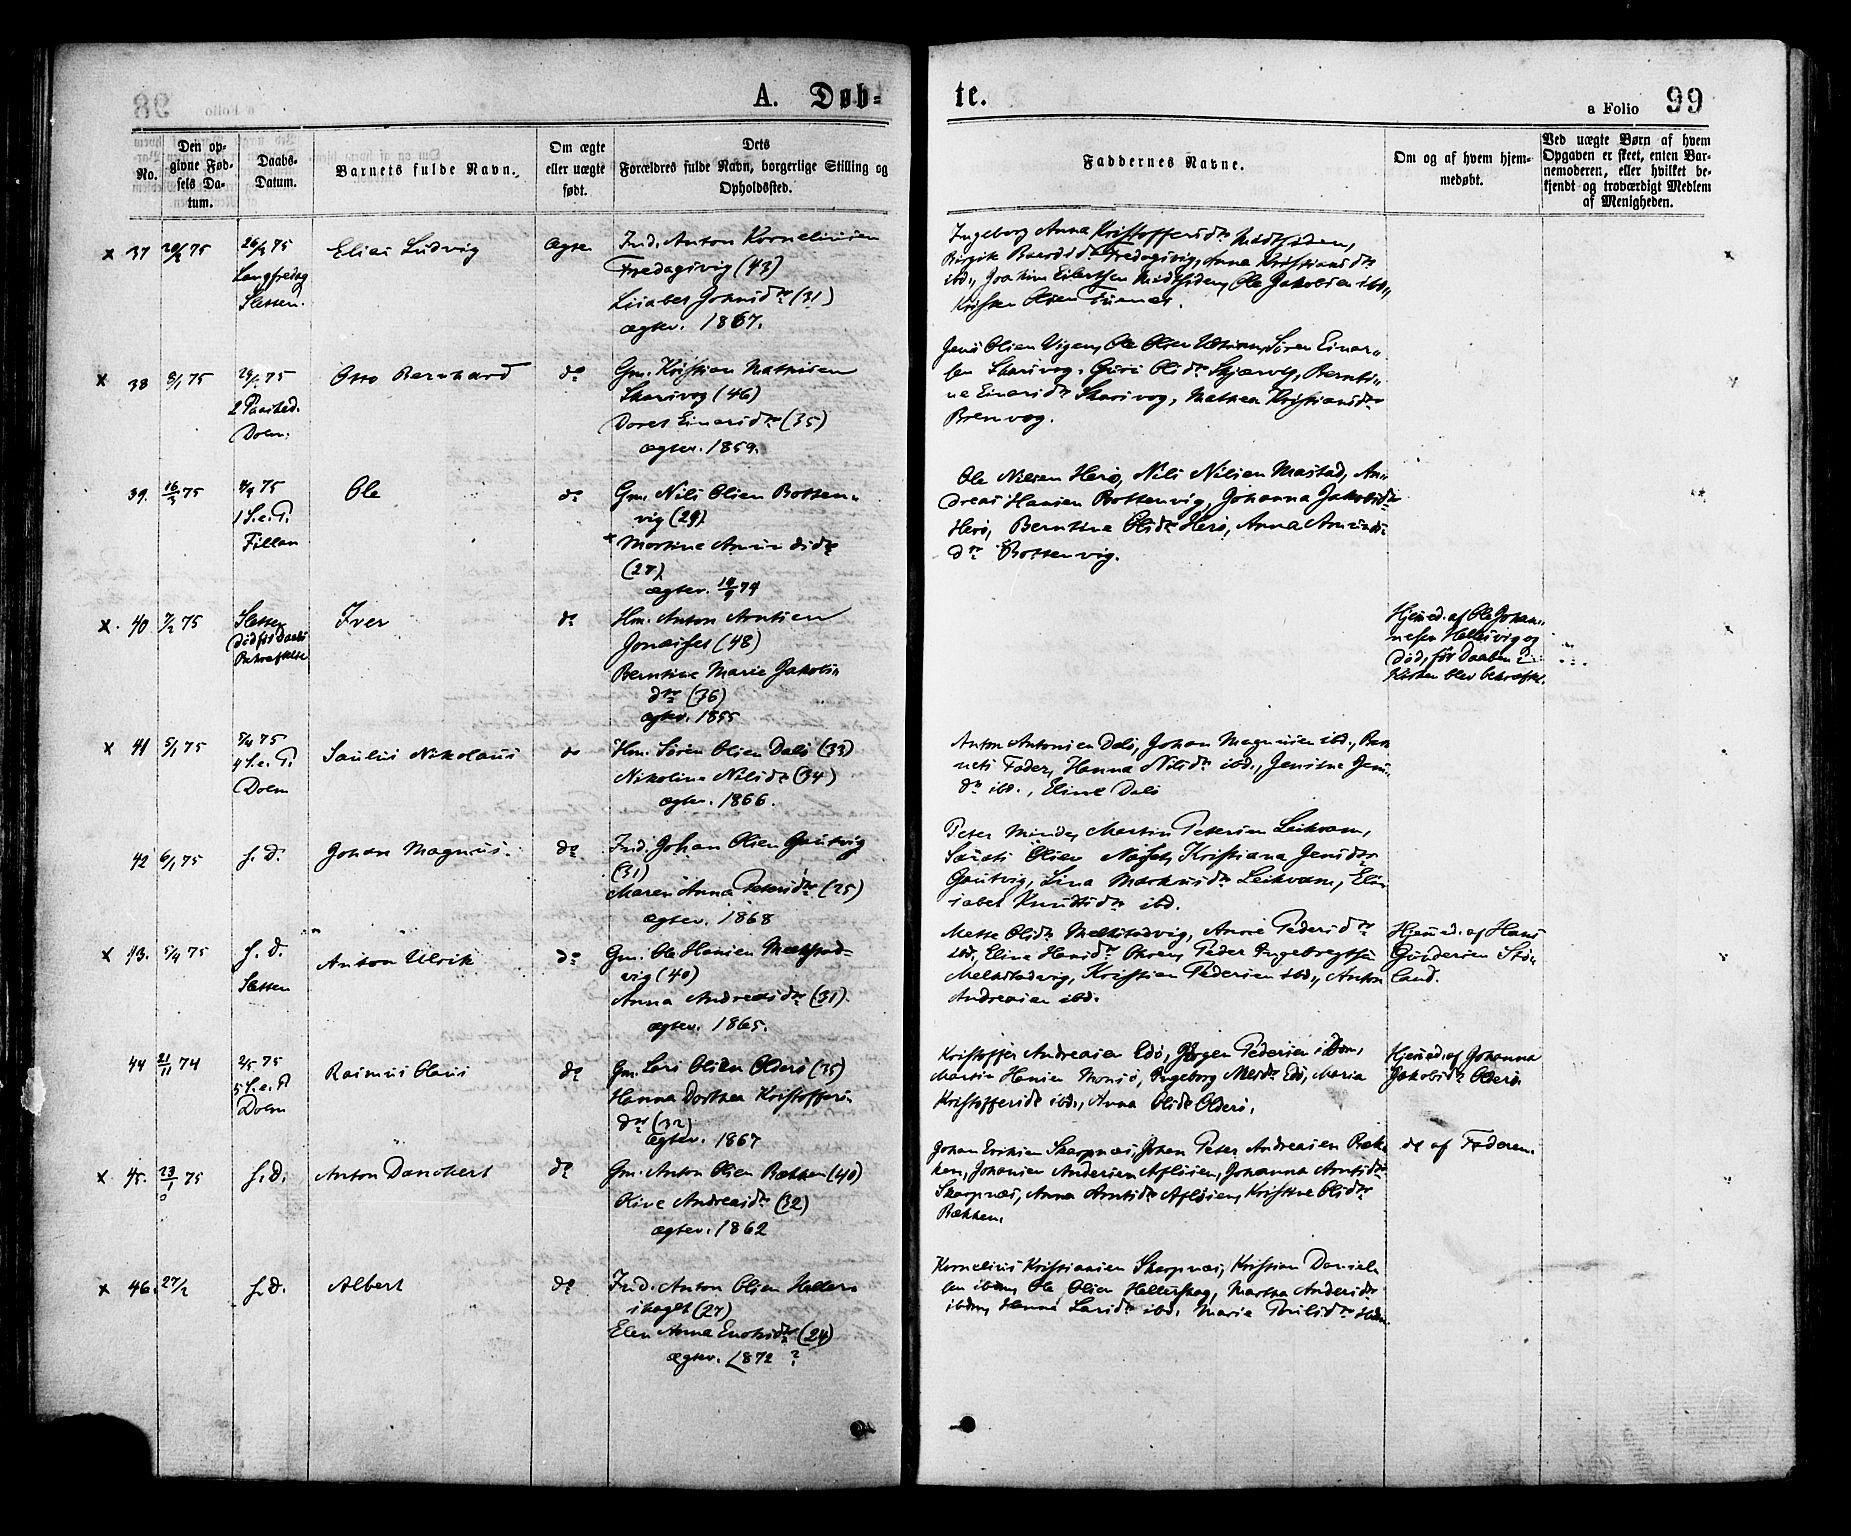 A. Døb-
te.
a Folio 99
No.
Den op-
givne Fød-
sels Da-
tum.
Daabs-
Datum.
Barnets fulde Navn.
Om ægte
eller uægte
født.
Dets
Forældres fulde Navn, borgerlige Stilling og
Opholdssted.
Faddernes Navne.
Om og af hvem hjem-
medøbt.
Ved uægte Børn af hvem
Opgaven er skeet, enten Bar-
nemoderen, eller hvilket be-
kjendt og troværdigt Medlem
af Menigheden.
x 37
75
26/3 75
Langfredag
Sletten.
Elias Ludvig
Ægte
Ind. Anton Korneliusen
Fredagsvig (43)
Lisabet Johnsdtr (31)
ægtev. 1867.
Ingeborg Anna Kristoffersdtr
Fredagsvig, Anna Kristiansdtr
ibd., Joakim Ole Jakobsen ibd.,
Kristen Olsen
x 38
8/1 75
29/3 75
2 Paasked.
Dolm.
Otto Bernhard
do
Gm. Kristian Mathisen
Skarsvog (46)
Doret Einarsdtr (35)
ægtev. 1859.
Jens Olsen Vigen, Ole Olsen Søren Einar-
sen Skarsvog, Guri Olsdtr Skjærvig, Bernti-
ne Einarsdtr Skarsvog, Mathea Kristiansdtr
Brenvog.
39.
16/3 75
4/4 75
1 S. e. P.
Fillan
Ole
do
Gm. Nils Olsen Botten-
vig (29)
x Martine Amundsdtr
(27)
ægtev. 74
Ole Nilsen Herø, Nils Nilsen Mastad, An-
dreas Hansen Bottenvig, Johanna Jakobsdtr
Herø, Berntine Olsdtr Herø, Anna Amunds-
dtr Bottenvig.
x. 40
7/2 75
Sletten
Død før Daabs
Bekræftelse
Iver
do
Hm. Anton Arntsen
(48)
Berntine Marie Jakobs-
dtr (36)
ægtev. 1855
Hjemmed. af Ole Johan-
nesen Hellesvig og
død, før Daaben i
Kirken blev bekræftet.
x 41
5/1 75
75
4 S. e. P.
Dolm
Saulus Nikolaus
do
Hm. Søren Olsen Dalø (33)
Nikoline Nilsdtr (34)
ægtev. 1866.
Anton Antonsen Dalø, Johan Magnusen ibd., Bar-
nets Fader, Hanna Nilsdtr ibd., Jensine Jens-
dtr ibd., Eline Dalø
42
6/1 75
s. D.
Johan Magnus.
do
Ind. Johan Olsen Gautvig
(31)
Maren Anna Petersdtr (25)
ægtev. 1868
Peter Martin Petersen Leikvam,
Olsen Næsset, Kristiana Jensdtr
Gautvig, Lina Markusdtr Leikvam, Eli-
sabet Knudtsdtr ibd.
x 43.
5/4 75
s. D.
Sletten
Anton Ulrik
do
Gm. Ole Hansen Melkstad-
vig (40)
Anna Andreasdtr (31).
ægtev. 1865.
Mette Olsdtr Melkstadvig, Anne Pedersdtr
ibd., Eline Hansdtr Peder Ingebregtsen
Melkstadvig, Kristian Pedersen ibd., Anton
Andreasen ibd.
Hjemmed. af Hans
Gundersen Stø-
land.
44
21/11 74
2/5 75
5 S. e. P.
Dolm
Rasmus Olaus
do
Gm. Lars Olsen Olderø (35)
Hanna Dorthea Kristoffers-
dtr (32)
ægtev. 1867
Kristoffer Andreasen Edø, Jørgen Pedersen ibdm,
Martin Hansen Monsø, Ingeborg Edø, Maria
Kristoffersdtr ibd., Anna Olsdtr Olderø.
Hjemmed. af Johanna
Jakobsdtr Olderø
x. 45.
23/1 75
s. D.
Anton Danckert
do
Gm. Anton Olsen Bækken (40)
Oline Andreasdtr (32)
ægtev. 1862
Johan Eriksen Skarpnæs, Johan Peter Andreasen Bæk-
ken, Johannes Andersen Afløsen, Johanna Arntsdtr
Skarpnæs, Anna Arntsdtr Afløsen, Kristine Olsdtr
Bækken.
do af Faderen.
x 46.
27/2
s. D.
Albert
do
Ind. Anton Olsen Hellers-
skaget (27)
Elen Anna Enoksdtr (24)
ægtev. 1872 ?
Kornelius Kristiansen Skarpnæs, Kristian Daniel-
sen ibdm, Ole Olsen Hellerskag, Martha Andersdtr
ibdm, Hanna Larsdtr ibd., Marie ibdm